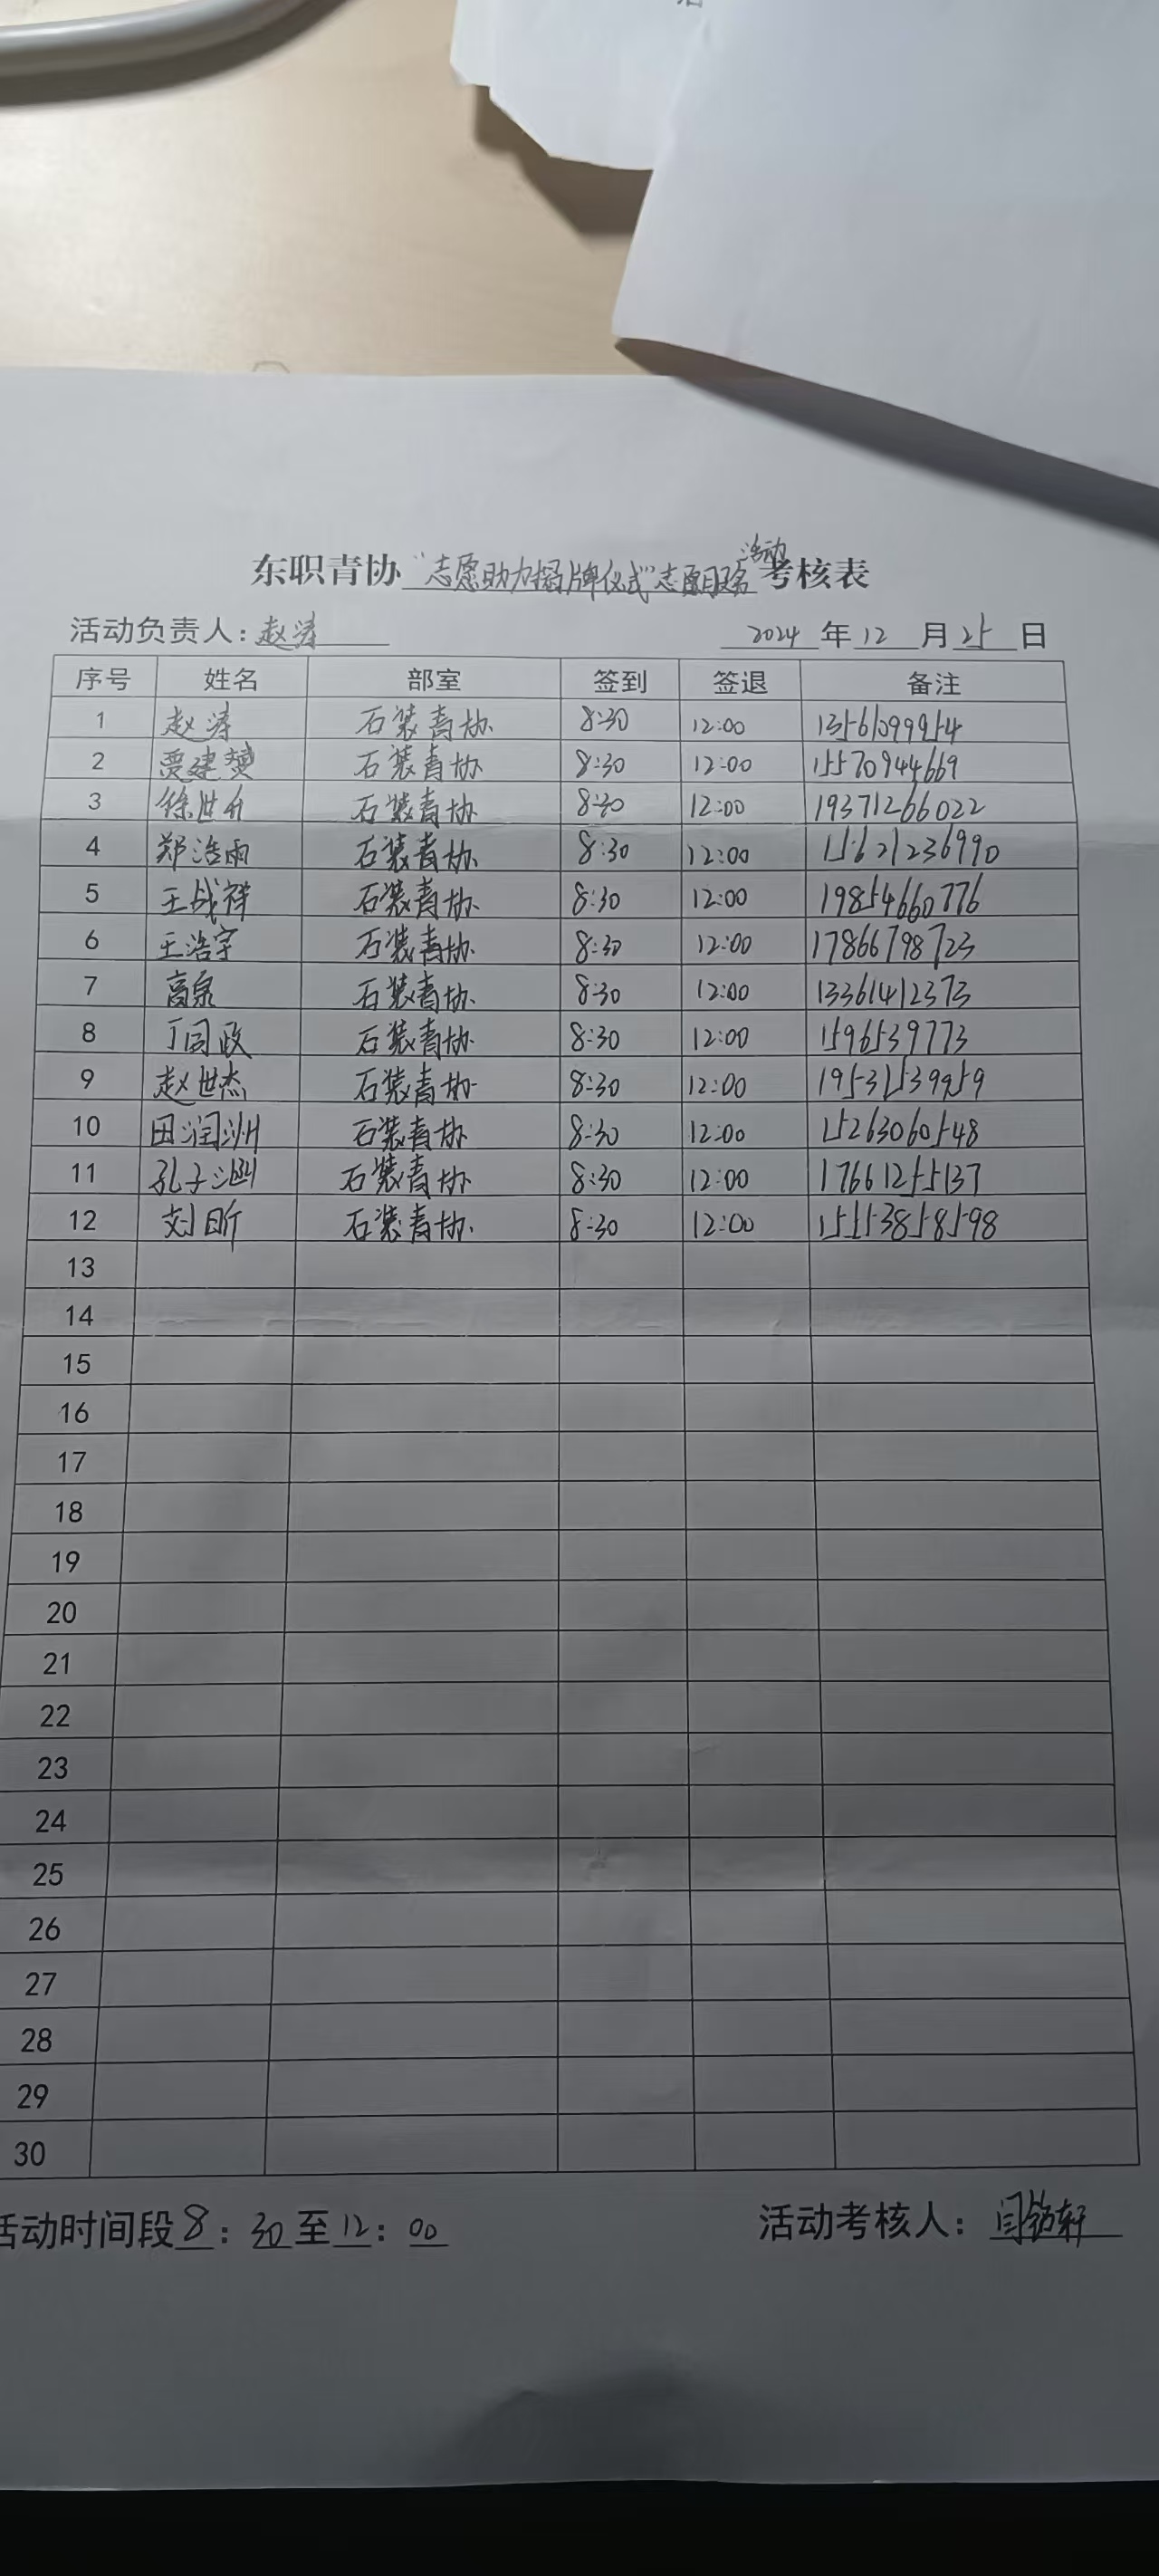 东职青协"志愿助力揭牌仪式"志愿服务活动考核表
活动负责人:赵涛 2024年12月25日
序号 姓名 部室 签到 签退 备注
1 赵涛 石装青协 8:30 12:00 13561099954
2 贾建樊 石装青协 8:30 12:00 15570944669
3 徐世介 石装青协 8:30 12:00 19371266022
4 郑浩雨 石装青协 8:30 12:00 15621236990
5 王战祥 石装青协 8:30 12:00 19854660776
6 王浩宇 石装青协 8:30 12:00 17866798723
7 高泉 石装青协 8:30 12:00 13361412373
8 丁同政 石装青协 8:30 12:00 1596539773
9 赵世杰 石装青协 8:30 12:00 19531539959
10 田润洲 石装青协 8:30 12:00 15263060548
11 孔子 石装青协 8:30 12:00 17661255137
12 刘昕 石装青协 8:30 12:00 15153858598
13
14
15
16
17
18
19
20
21
22
23
24
25
26
27
28
29
30
活动时间段8:30至12:00 活动考核人:闫 轩